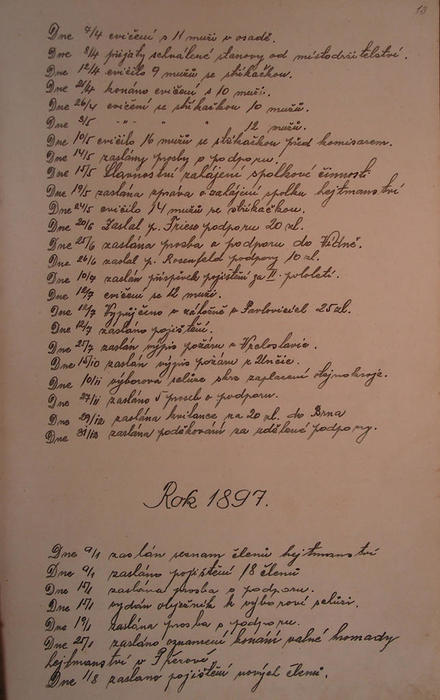 13
Dne 7/4 cvičení s 11 muži v osadě.
Dne 8/4 přijaty schválené stanovy od místodržitelství.
Dne 12/4 cvičilo 9 mužů se stříkačkou.
Dne 21/4 konáno cvičení s 10 muži.
Dne 26/4 cvičení se stříkačkou 10 mužů.
Dne 3/5 " " " 12 mužů.
Dne 10/5 cvičilo 16 mužů se stříkačkou před komisarem.
Dne 14/5 zaslány prosby o podporu.
Dne 17/5 Slavnostní zahájení spolkové činnosti
Dne 19/5 zaslána zpráva o zahájení spolku hejtmanství
Dne 24/5 cvičilo 14 mužů se stříkačkou.
Dne 20/6 Zaslal p. podporu 20 zl.
Dne 25/6 zaslána prosba o podporu do Vídně.
Dne 26/6 zaslal p. Rosenfeld podpory 10 zl.
Dne 10/7 zaslán příspěvek pojištění za II. pololetí.
Dne 12/7 cvičeno se 12 muži.
Dne 12/7 Vypůjčeno v záložně v Pavlovicích 25 zl.
Dne 12/7 zasláno pojištění.
Dne 25/7 zaslán výpis požáru v
Dne 15/10 zaslán výpis požáru v
Dne 10/11 výborová schůze skrz zaplacení stejnokroje.
Dne 27/11 zasláno 5 proseb o podporu.
Dne 29/12 zaslána kvitance na 20 zl. do Brna
Dne 31/12 zaslána poděkování za udělené podpory.
Rok 1897.
Dne 9/1 zaslán seznam členů hejtmanství
Dne 9/1 zasláno pojištění 18 členů
Dne 17/1 zaslána prosba o podporu.
Dne 17/1 vydán obyčejník k výborové schůzi.
Dne 19/1 zaslána prosba o podporu.
Dne 25/1 zasláno oznamení konání valné hromady
hejtmanství v Přerově.
Dne 11/8 zaslano pojištění nových členů.